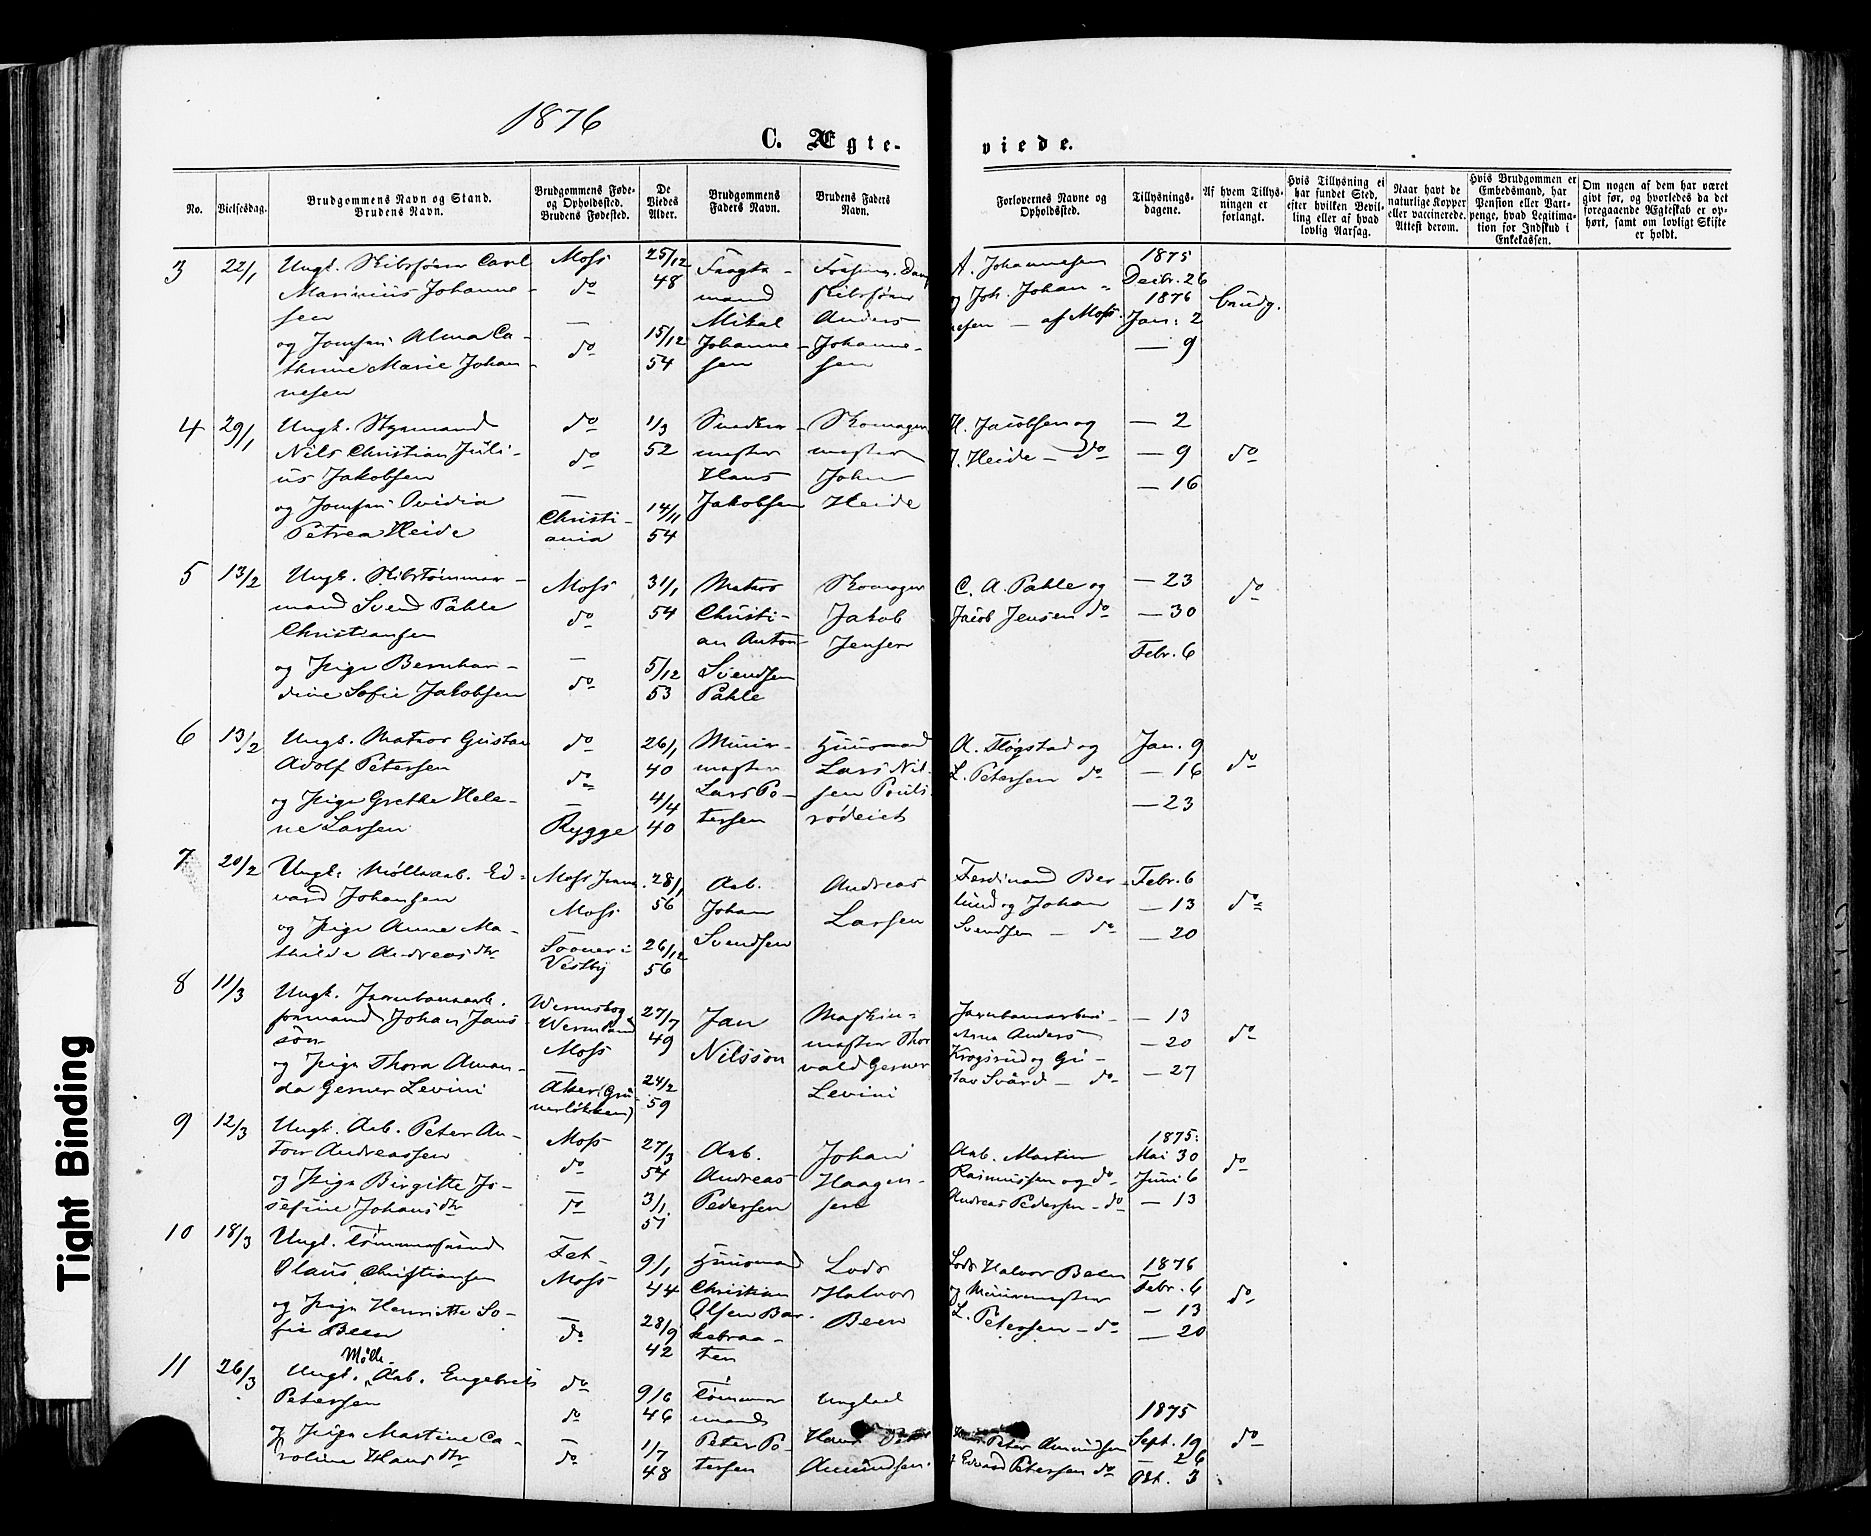 1876
C. Ægte-
viede.
No.
Vielsesdag.
Brudgommens Navn og Stand.
Brudens Navn.
Brudgommens Føde-
og Opholdssted.
Brudens Fødested.
De
Viedes
Alder.
Brudgommens
Faders Navn.
Brudens Faders
Navn.
Forlovernes Navne og
Opholdssted.
Tillysnings-
dagene.
Af hvem Tillys-
ningen er
forlangt.
Hvis Tillysning ei
har fundet Sted,
efter hvilken Bevil-
ling eller af hvad
lovlig Aarsag.
Naar havt de
naturlige Kopper
eller vaccinerede.
Attest derom.
Hvis Brudgommen er
Embedsmand, har
Pension eller Vart-
penge, hvad Legitima-
tion for Indskud i
Enkekassen.
Om nogen af dem har været
givt før, og hvorledes da det
foregaaende Ægteskab er op-
hørt, samt om lovligt Skifte
er holdt.
3
22/1
Ungk. Skibsfører Carl
Marinius Johanne-
sen
og Jomfru Alma Ca-
thrine Marie Johan-
nesen
Moss
do
—
do
25/12
48
15/12
54
Fragte-
mand
Mikal
Johanne-
sen
Skibsfører
Anders
Johanne-
sen
A. Johannesen
og Joh. Johan-
nesen — af Moss.
1875
Decbr. 26
1876
Jan: 2
— 9
brudg.
4
29/1
Ungk. Styrmand
Nils Christian Juli-
us Jakobsen
og Jomfru Ovidia
Petrea Heide
do
do
—
Christi-
ania
1/3
52
14/11
54
Snedker-
mester
Hans
Jakobsen
Skomager
mester
John
Heide
H. Jacobsen og
J. Heide — do
— 2
— 9
— 16
do
5
13/2
Ungk. Skibstømmer-
mand Svend Pahle
Christiansen
og Pige Bernhar-
dine Sofie Jakobsen
Moss
do
—
do
31/1
54
5/12
53
Matros
Christi-
an Anton
Svendsen
Pahle
Skomager
Jakob
Jensen
C. A. Pahle og
Jacob Jensen do
— 23
— 30
Febr. 6
do
6
13/2
Ungk. Matros Gustav
Adolf Petersen
og Pige Grethe Hele-
ne Larsen
do
do
—
Rygge
26/1
40
4/4
40
Murer-
mester
Lars Pe-
tersen
Huusmand
Lars Nil-
sen Pouls-
rødeiet
A. Fløgstad og
L. Petersen do
Jan. 9
— 16
— 23
do
7
20/2
Ungk. Møllearb. Ed-
vard Johansen
og Pige Anne Ma-
thilde Andreasdtr
Moss
Sooner i
Vestby
28/1
56
26/12
56
Arb.
Johan
Svendsen
Andreas
Larsen
Ferdinand Ber-
lund og Johan
Svendsen — do
Febr. 6
— 13
— 20
do
8
11/3
Ungk. Jernbanearb.
formand Johan Jans-
son
og Pige Thora Aman-
da Gerner Levini
Wermland
Moss
—
Aker (Grü-
nerløkken)
27/7
49
24/2
59
Jan
Nilsson
Maskin-
mester Thor
vald Gerner
Levini
Jernbanearbei-
Anders
Krogsrud og Gu-
stav Svärd — do
— 13
— 20
— 27
do
9
12/3
Ungk. Arb. Peter An-
ton Andreassen
og Pige Birgitte Jo-
sefine Johansdtr
Moss
do
—
do
27/3
54
3/1
51
Arb.
Andreas
Pedersen
Johan
Haagen-
sen
Arb. Martin
Rasmussen og do
Andreas Pedersen — do
1875:
Mai 30
Juni 6
— 13
do
10
18/3
Ungk. Tømmermand
Olaus Christiansen
og Pige Henriette So-
fie Been
Fet
Moss
—
do
9/1
44
28/9
42
Huusmand
Christian
Olsen Bar-
kebraa-
ten
Lods
Halvor
Been
Lods Halvor Been
og Murermester
L. Petersen — do
1876
Febr. 6
— 13
— 20
do
11
26/3
Ungk. Mølle. Arb. Engebret
Petersen
og Pige Martine Ca-
roline Hansdtr
do
do
—
do
9/6
46
1/7
48
Tømmer
mand
Peter Pe-
tersen
Ungkarl
Hans Peter
Amundsen.
Hans Peter Amundsen
og Edvard Petersen do
1875
Sept. 19
— 26
Okt. 3
do
Tight Binding